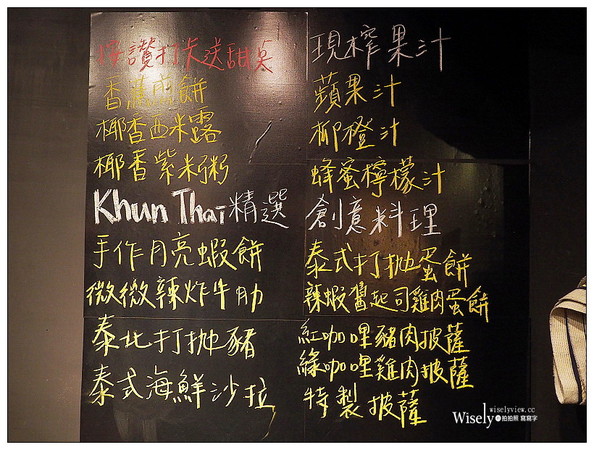 按讚打卡送甜点
香蕉煎餅
椰香西米露
椰香紫米粥
Khun Thai精選
手作月亮蝦餅
微微辣炸牛肋
泰北打拋豬
泰式海鮮沙拉
現榨果汁
蘋果汁
柳橙汁
蜂蜜檸檬汁
創意料理
泰式打拋蛋餅
辣蝦醬起司雞肉蛋餅
紅咖哩豬肉披薩
綠咖哩雞肉披薩
特製披薩
wiselyview.cc
Wisely 拍拍照 寫寫字